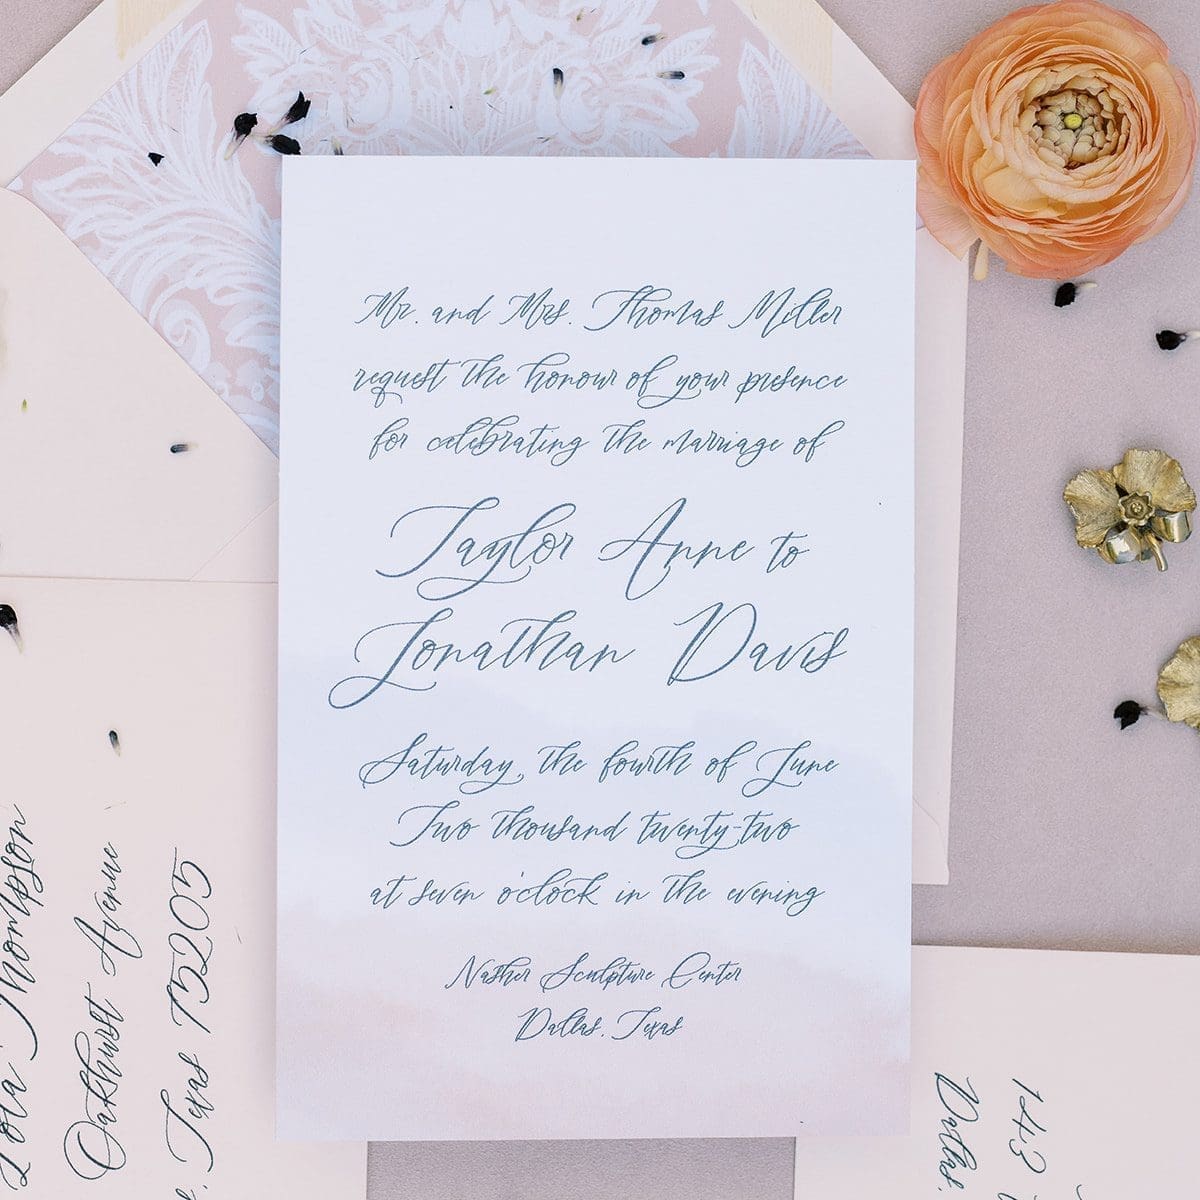 Mr. and Mrs. Thomas Miller
request the honour of your presence
for celebrating the marriage of
Taylor Anne to
Jonathan Davis
Saturday, the fourth of June
Two thousand twenty-two
at seven o'clock in the evening
Nasher Sculpture Center
Dallas, Texas
Thompson
Oakhurst Avenue
Texas 75205
143
Dallas,